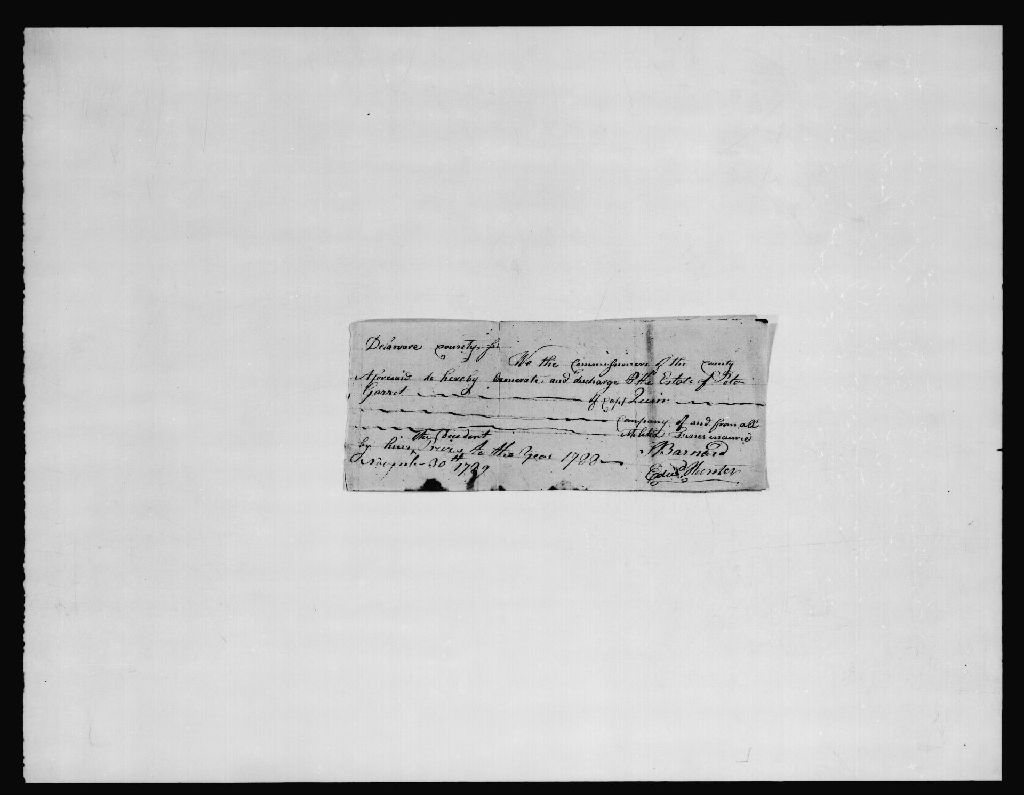 Delaware county ss
We the Commissioners of the county
Aforesaid do hereby Exonerate and discharge the Estate of Peter
Garret of Capt
Company of and from all
Militia Fines incurred
the Decedent
by him, Previous to the Year 1788
30th 1789
Barnard
Edwd Hunter